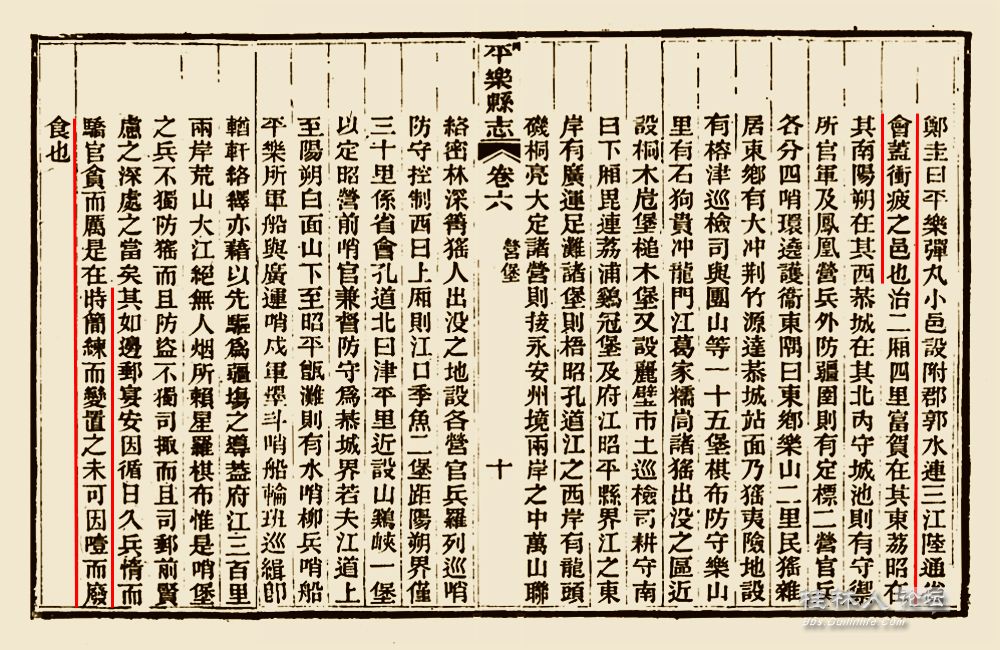 鄭圭曰平樂彈丸小邑設附郡郭水連三江陸通省
會蓋衝疲之邑也治二厢四里富賀在其東荔昭在
其南陽朔在其西恭城在其北内守城池則有守禦
所官軍及鳳凰營兵外防疆圉則有定標二營官兵
各分四哨環遶護衞東隅曰東鄉樂山二里民猺雜
居東鄉有大冲荆竹源達恭城站面乃猺夷險地設
有榕津巡檢司與團山等一十五堡棋布防守樂山
里有石狗貴冲龍門江葛家糯尚諸猺出没之區近
設桐木卮堡槌木堡又設麗壁市土巡檢司耕守南
曰下厢毘連荔浦鷄冠堡及府江昭平縣界江之東
岸有廣運足灘諸堡則梧昭孔道江之西岸有龍頭
磯桐亮大定諸營則接永安州境兩岸之中萬山聯
平樂縣志
卷六
營堡
十
絡密林深箐猺人出没之地設各營官兵羅列巡哨
防守控制西曰上厢則江口季魚二堡距陽朔界僅
三十里係省會孔道北曰津平里近設山鷄峽一堡
以定昭營前哨官兼督防守爲恭城界若夫江道上
至陽朔白面山下至昭平甑灘則有水哨柳兵哨船
平樂所軍船與廣運哨戍軍擇斗哨船輪班巡緝即
輶軒絡繹亦藉以先驅爲疆塲之導蓋府江三百里
兩岸荒山大江絕無人烟所賴星羅棋布惟是哨堡
之兵不獨防猺而且防盜不獨司掫而且司郵前賢
慮之深處之當矣其如邊郵宴安因循日久兵惰而
驕官貪而厲是在時簡練而變置之未可因噎而廢
食也
桂林人 论坛
bbs.guilinlife.com